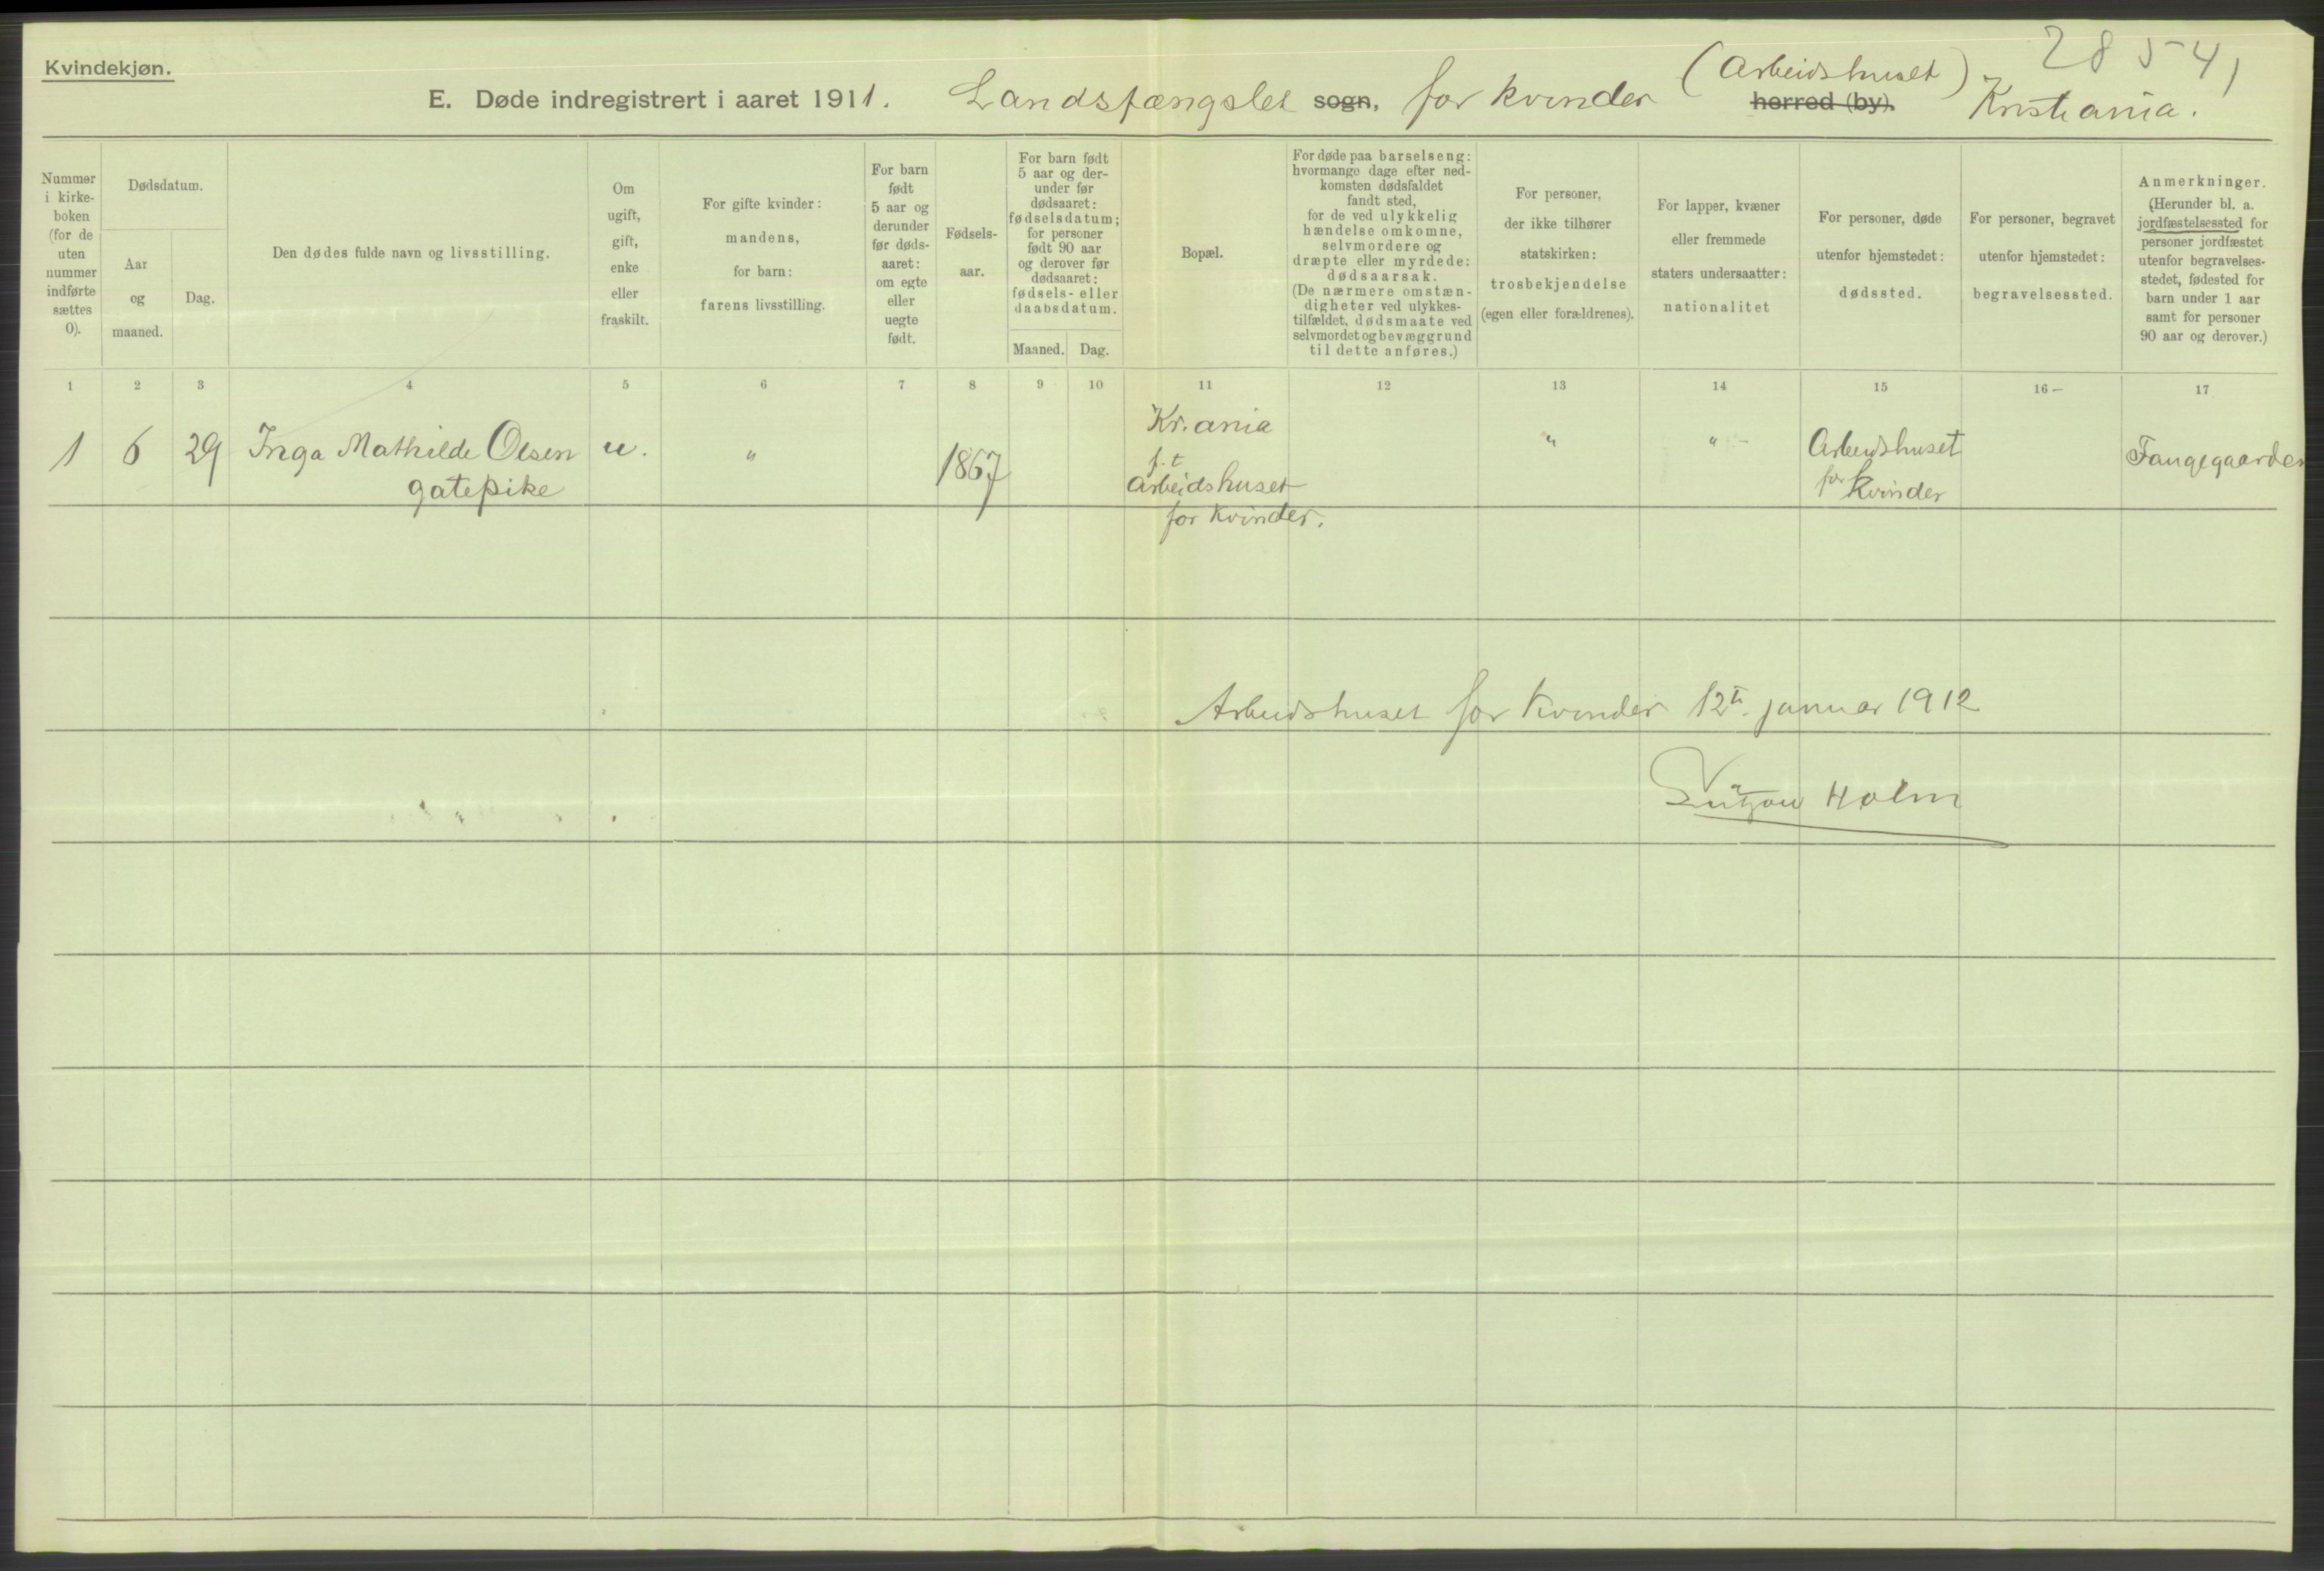 Kvindekjøn.
28541
E. Døde indregistrert i aaret 1911. Landsfængslet sogn, for kvinder (Arbeidshuset) herred (by). Kristiania.
Nummer i kirke-boken (for de uten nummer indførte sættes 0).
Dødsdatum.
Aar og maaned.
Dag.
Den dødes fulde navn og livsstilling.
Om ugift, gift, enke eller fraskilt.
For gifte kvinder: mandens, for barn: farens livsstilling.
For barn født 5 aar og derunder før døds-aaret: om egte eller uegte født.
Fødsels-aar.
For barn født 5 aar og der-under før dødsaaret: fødselsdatum; for personer født 90 aar og derover før dødsaaret: fødsels- eller daabsdatum.
Maaned.
Dag.
Bopæl.
For døde paa barselseng: hvormange dage efter ned-komsten dødsfaldet fandt sted, for de ved ulykkelig hændelse omkomne, selvmordere og dræpte eller myrdede: dødsaarsak. (De nærmere omstæn-digheter ved ulykkes-tilfældet, dødsmaate ved selvmordet og bevæggrund til dette anføres.)
For personer, der ikke tilhører statskirken: trosbekjendelse (egen eller forældrenes).
For lapper, kvæner eller fremmede staters undersaatter: nationalitet
For personer, døde utenfor hjemstedet: dødssted.
For personer, begravet utenfor hjemstedet: begravelsessted.
Anmerkninger. (Herunder bl. a. jordfæstelsessted for personer jordfæstet utenfor begravelses-stedet, fødested for barn under 1 aar samt for personer 90 aar og derover.)
1 2 3 4 5 6 7 8 9 10 11 12 13 14 15 16 17
1 6 29 Inga Mathilde Olsen u. " 1867 Kr.ania " " Arbeidshuset Fangegaarden
gatepike p.t Arbeidshuset for Kvinder
for Kvinder.
Arbeidshuset for Kvinder 12te januar 1912
Lützow Holm